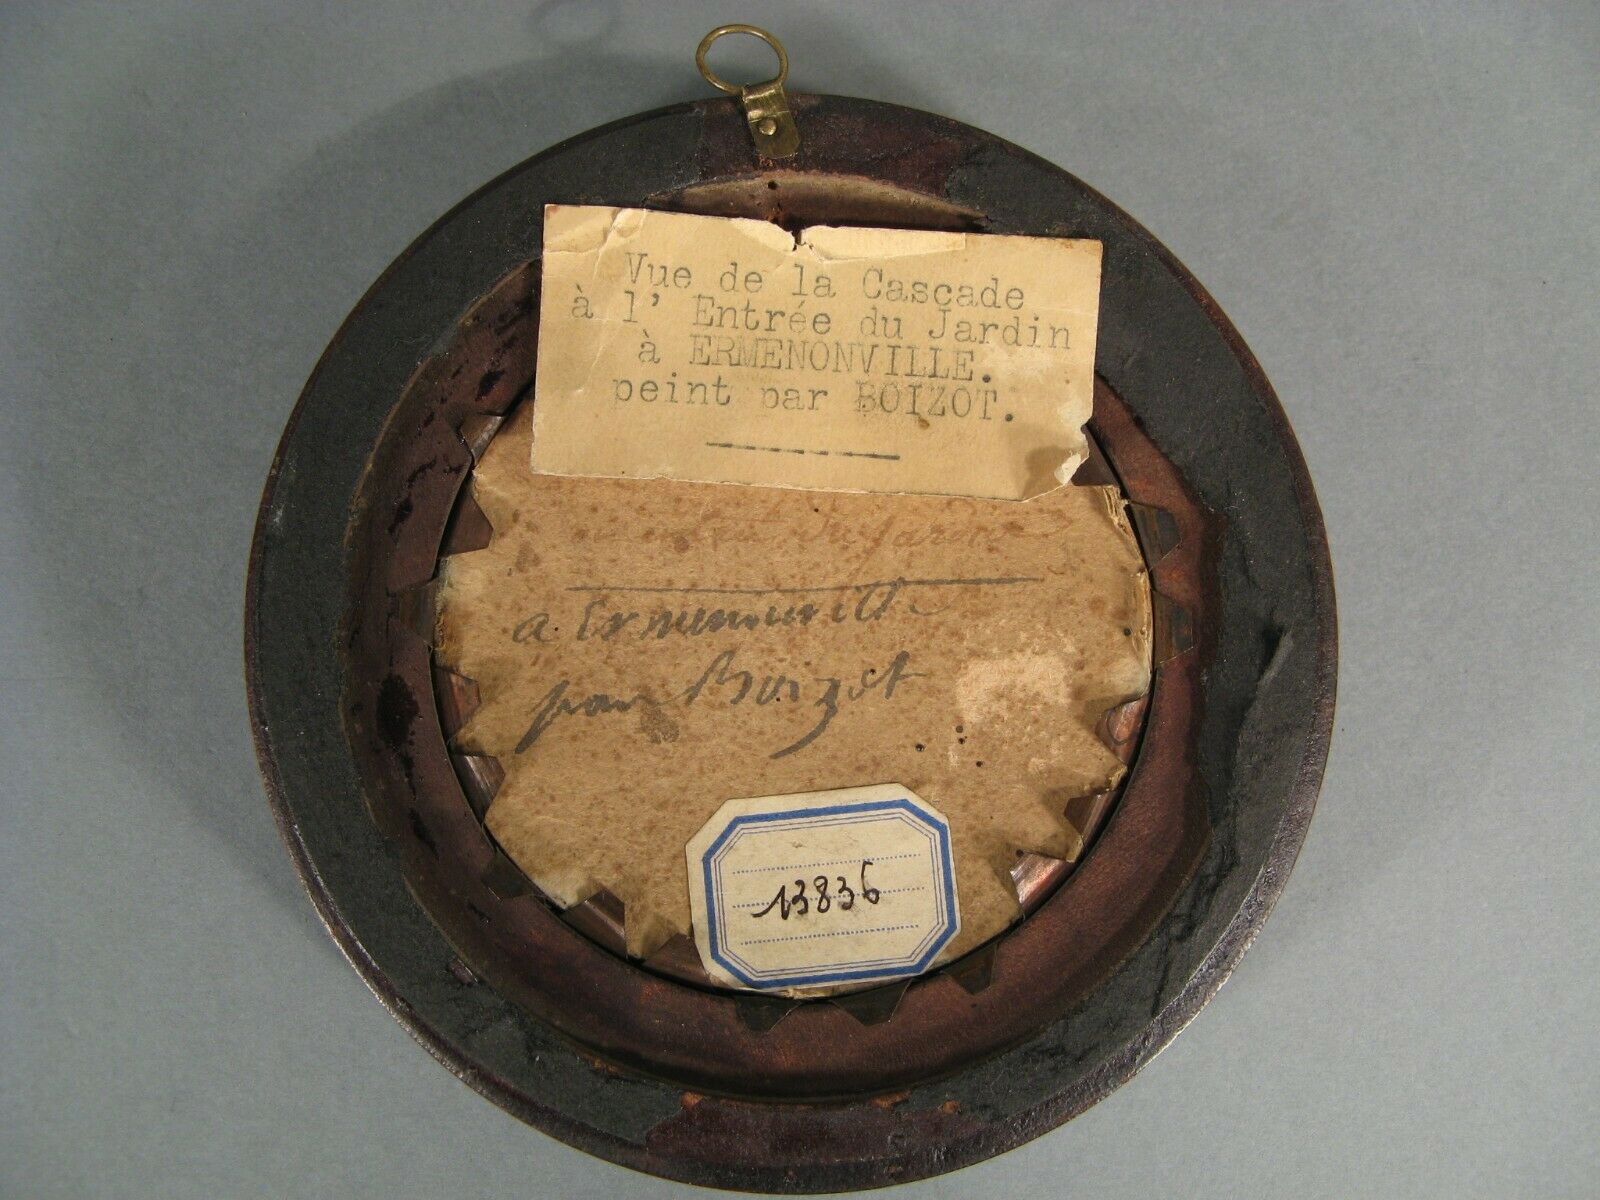 Vue de la Cascade
à l' Entrée du Jardin
à ERMENONVILLE.
peint par BOIZOT.
du jardin
a Ermenonville
par Boizot
13836